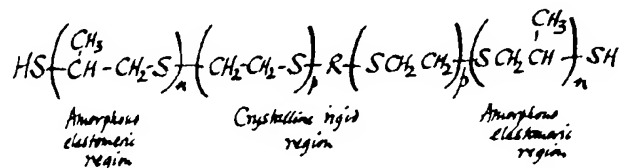 CH₃ CH₃
HS(CH-CH₂-S)ₙ(CH₂-CH₂-S)ₚR-(SCH₂CH₂)ₚ(SCH₂CH)ₙSH
Amorphous elastomeric region
Crystalline rigid region
Amorphous elastomeric region